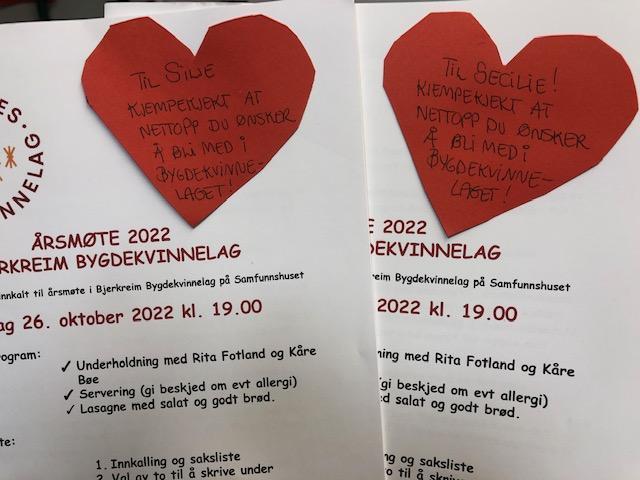 ES.
NNELAG
TIL SILJE
KJEMPEKJEKT AT
NETTOPP DU ØNSKER
Å BLI MED I
BYGDEKVINNE-
LAGET!
ÅRSMØTE 2022
RKREIM BYGDEKVINNELAG
nnkalt til årsmøte i Bjerkreim Bygdekvinnelag på Samfunnshuset
ag 26. oktober 2022 kl. 19.00
rogram:
✓ Underholdning med Rita Fotland og Kåre
Bøe
✓ Servering (gi beskjed om evt allergi)
✓ Lasagne med salat og godt brød.
te:
1. Innkalling og saksliste
2. Val av to til å skrive under
TIL SECILIE!
KJEMPEKJEKT AT
NETTOPP DU ØNSKER
Å BLI MED I
BYGDEKVINNE-
LAGET!
E 2022
DEKVINNELAG
reim Bygdekvinnelag på Samfunnshuset
2022 kl. 19.00
ning med Rita Fotland og Kåre
(gi beskjed om evt allergi)
d salat og godt brød.
ng og saksliste
o til å skrive under